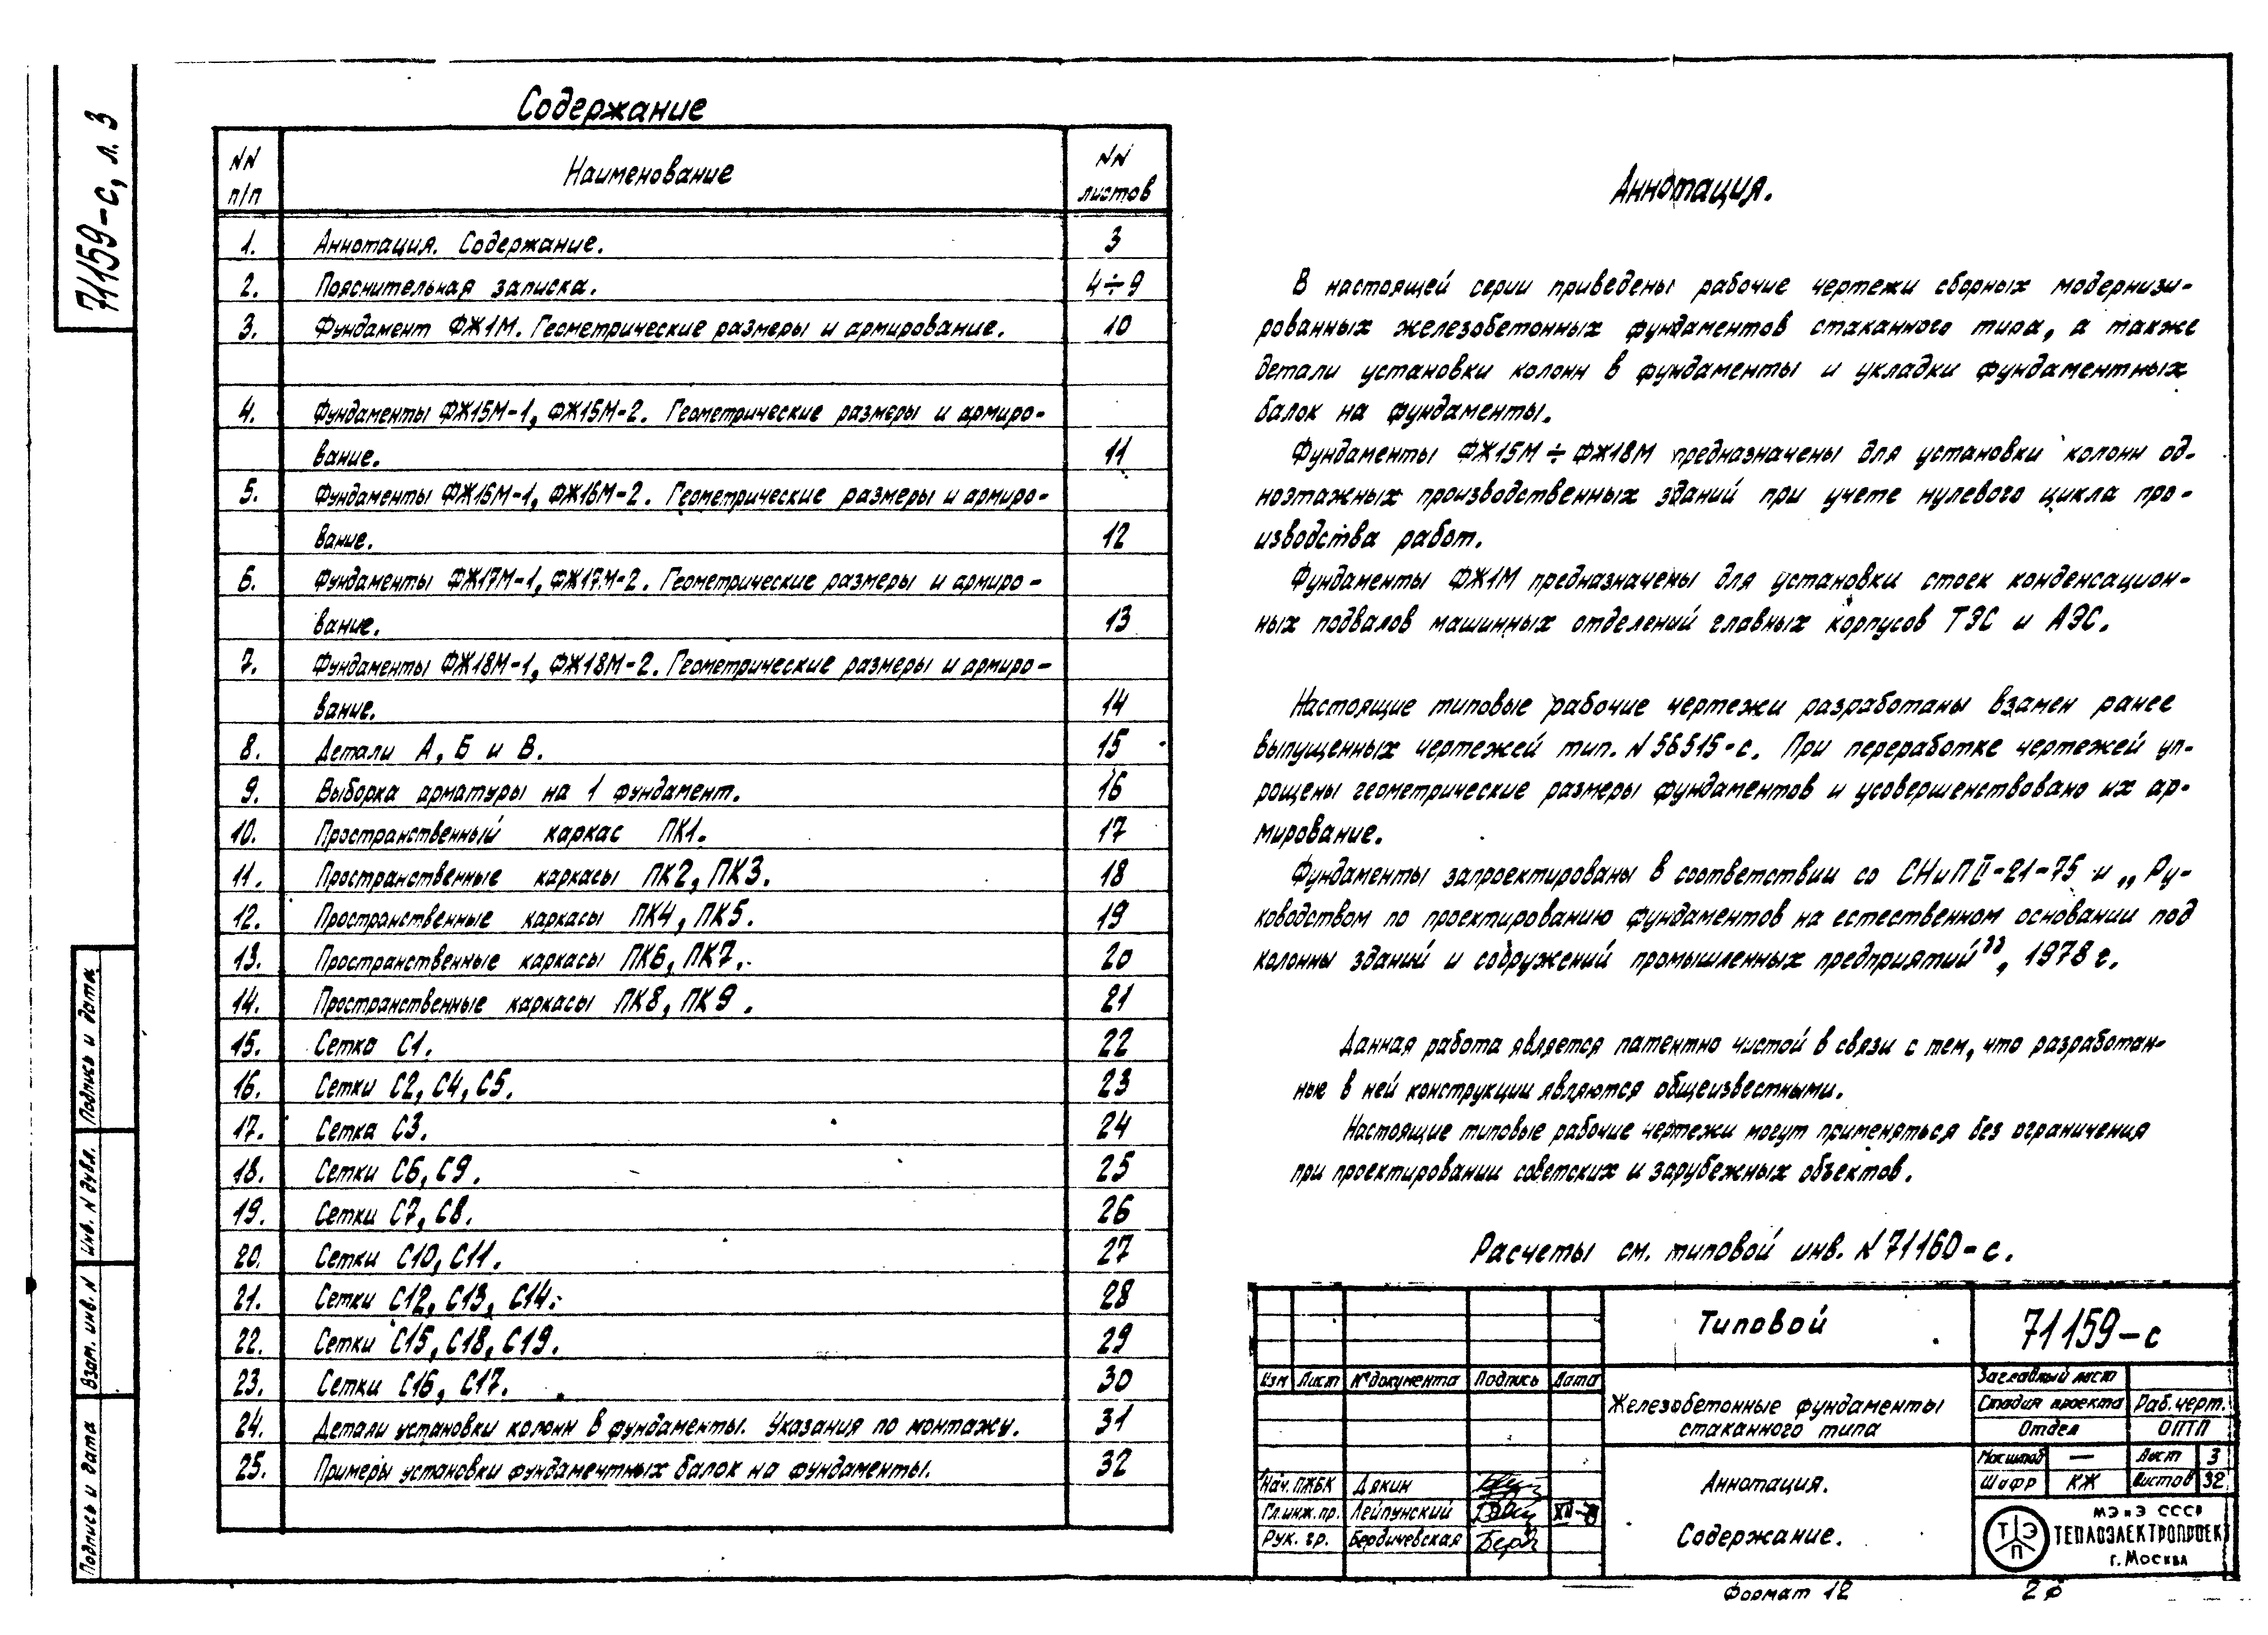 71159-с, л. 3
Содержание
NN п/п
Наименование
NN листов
1. Аннотация. Содержание. 3
2. Пояснительная записка. 4÷9
3. Фундамент ФЖ1М. Геометрические размеры и армирование. 10
4. Фундаменты ФЖ15М-1, ФЖ15М-2. Геометрические размеры и армиро-
вание. 11
5. Фундаменты ФЖ16М-1, ФЖ16М-2. Геометрические размеры и армиро-
вание. 12
6. Фундаменты ФЖ17М-1, ФЖ17М-2. Геометрические размеры и армиро-
вание. 13
7. Фундаменты ФЖ18М-1, ФЖ18М-2. Геометрические размеры и армиро-
вание. 14
8. Детали А, Б и В. 15
9. Выборка арматуры на 1 фундамент. 16
10. Пространственный каркас ПК1. 17
11. Пространственные каркасы ПК2, ПК3. 18
12. Пространственные каркасы ПК4, ПК5. 19
13. Пространственные каркасы ПК6, ПК7. 20
14. Пространственные каркасы ПК8, ПК9. 21
15. Сетка С1. 22
16. Сетки С2, С4, С5. 23
17. Сетка С3. 24
18. Сетки С6, С9. 25
19. Сетки С7, С8. 26
20. Сетки С10, С11. 27
21. Сетки С12, С13, С14. 28
22. Сетки С15, С18, С19. 29
23. Сетки С16, С17. 30
24. Детали установки колонн в фундаменты. Указания по монтажу. 31
25. Примеры установки фундаментных балок на фундаменты. 32
Аннотация.
В настоящей серии приведены рабочие чертежи сборных модернизи-
рованных железобетонных фундаментов стаканного типа, а также
детали установки колонн в фундаменты и укладки фундаментных
балок на фундаменты.
Фундаменты ФЖ15М÷ФЖ18М предназначены для установки колонн од-
ноэтажных производственных зданий при учете нулевого цикла про-
изводства работ.
Фундаменты ФЖ1М предназначены для установки стоек конденсацион-
ных подвалов машинных отделений главных корпусов ТЭС и АЭС.
Настоящие типовые рабочие чертежи разработаны взамен ранее
выпущенных чертежей тип. N 56515-с. При переработке чертежей уп-
рощены геометрические размеры фундаментов и усовершенствовано их ар-
мирование.
Фундаменты запроектированы в соответствии со СНиП II-21-75 и „Ру-
ководством по проектированию фундаментов на естественном основании под
колонны зданий и сооружений промышленных предприятий”, 1978 г.
Данная работа является патентно чистой в связи с тем, что разработан-
ные в ней конструкции являются общеизвестными.
Настоящие типовые рабочие чертежи могут применяться без ограничения
при проектировании советских и зарубежных объектов.
Расчеты см. типовой инв. N 71160-с.
Типовой
71159-с
Изм Лист №документа Подпись Дата
Железобетонные фундаменты
стаканного типа
Заглавный лист
Стадия проекта Раб.черт.
Отдел ОПТП
Масштаб — Лист 3
Шифр КЖ Листов 32
Нач. ПЖБК Дякин
Гл.инж.пр. Лейпунский
Рук. гр. Бердичевская
Аннотация.
Содержание.
ТЭП
МЭиЭ СССР
ТЕПЛОЭЛЕКТРОПРОЕКТ
г. Москва
Формат 12
Подпись и дата
Инв. N дубл.
Взам. инв. N
Подпись и дата